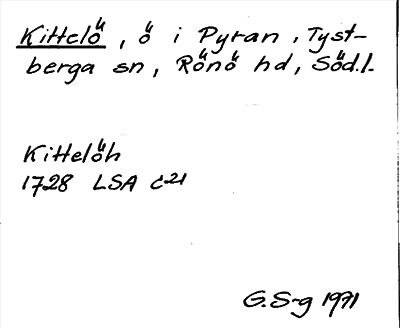 Kittelö, ö i Pyran, Tyst-
berga sn, Rönö hd, Söd.l.
Kittelöh
1728 LSA c21
G.S-g 1971